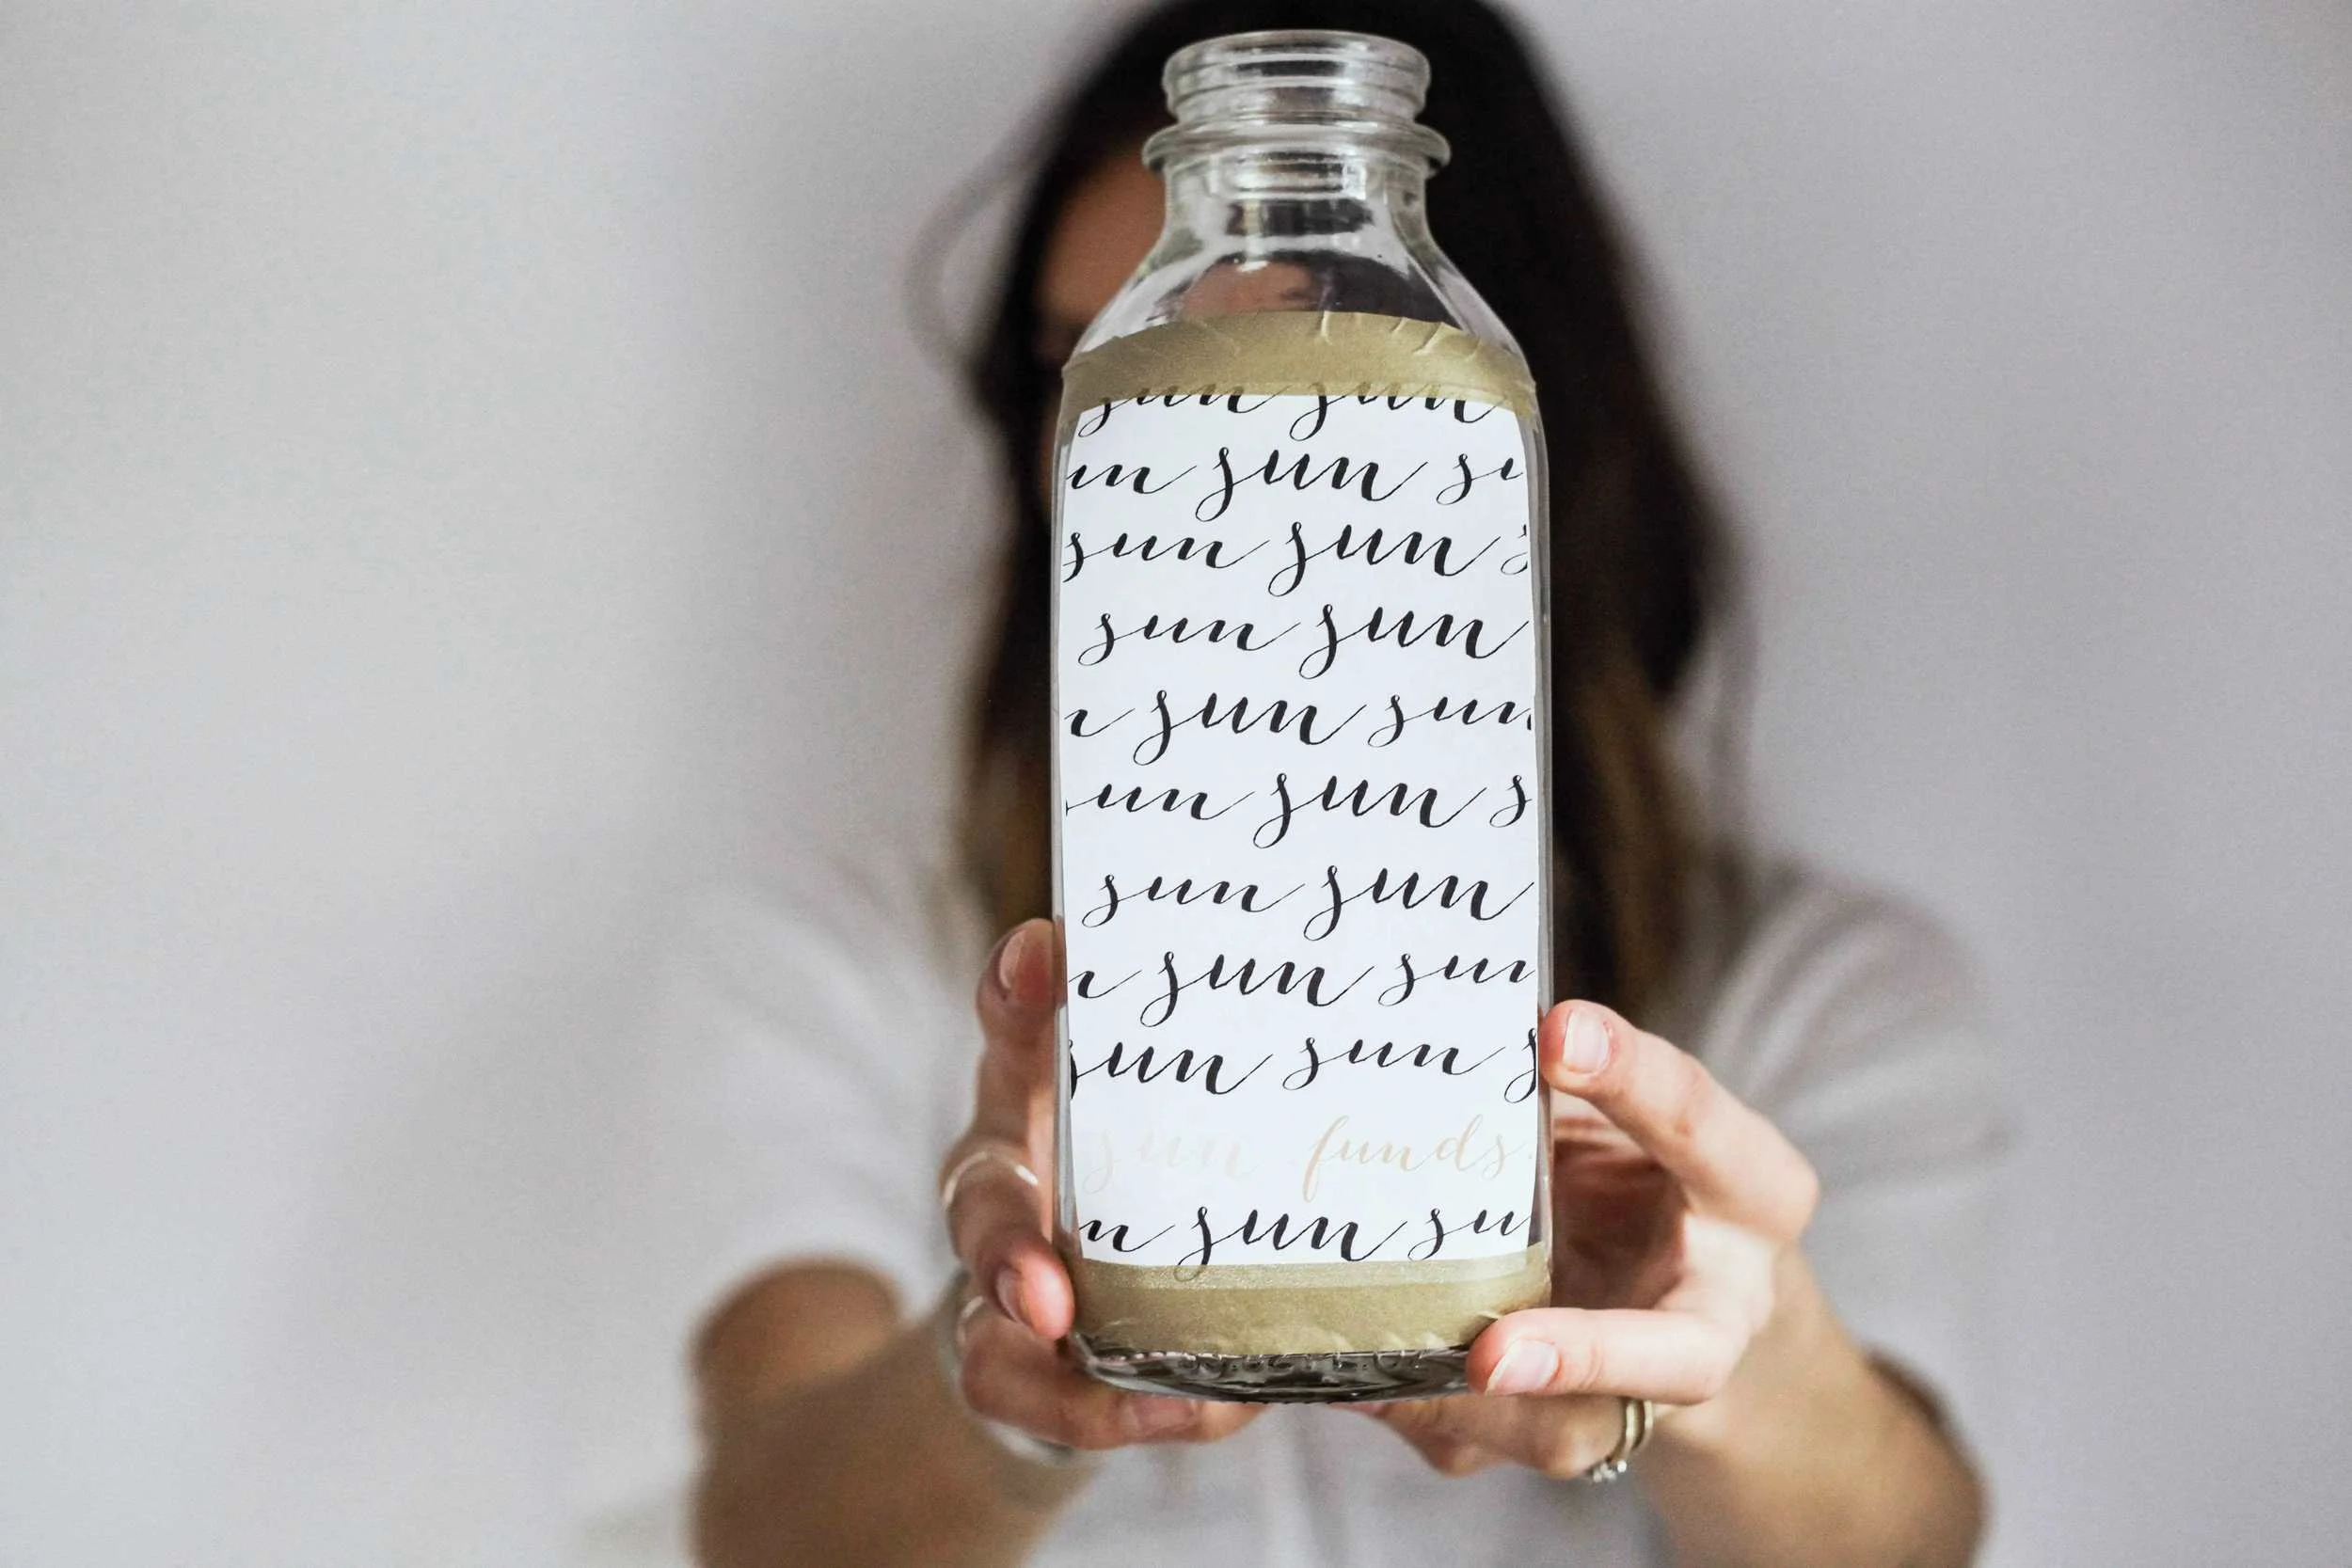 sun sun
un sun su
sun sun s
sun sun
n sun sun
un sun s
sun sun
n sun sun
sun sun s
sun funds.
n sun su